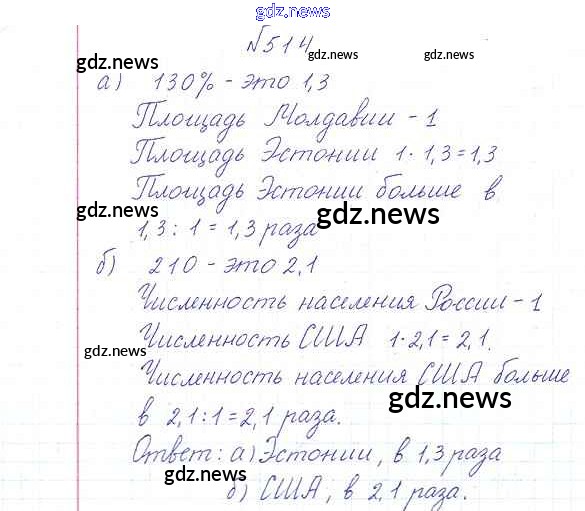 gdz.news
№514
gdz.news gdz.news gdz.news
а) 130% - это 1,3
Площадь Молдавии - 1
gdz.news
Площадь Эстонии 1 · 1,3 = 1,3
Площадь Эстонии больше в
gdz.news gdz.news
1,3 : 1 = 1,3 раза
б) 210 - это 2,1
Численность населения России - 1
Численность США 1 · 2,1 = 2,1.
gdz.news
Численность населения США больше
gdz.news
в 2,1 : 1 = 2,1 раза.
Ответ: а) Эстонии, в 1,3 раза
gdz.news
б) США, в 2,1 раза.